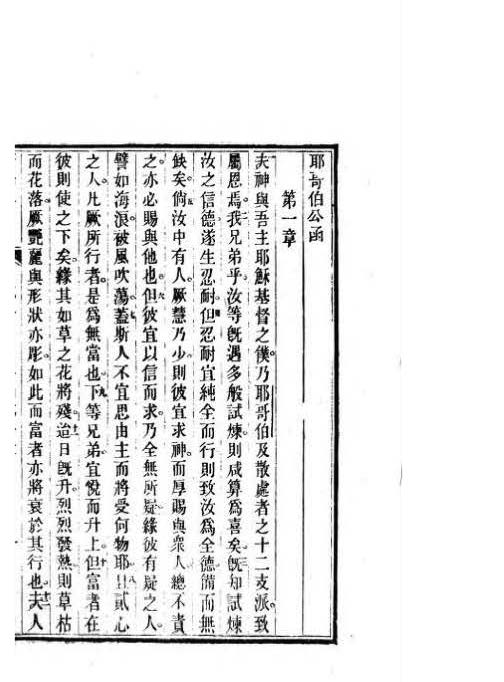 耶哥伯公函
第一章
夫神與吾主耶穌基督之僕乃耶哥伯及散處者之十二支派致
屬恩焉我兄弟乎汝等既遇多般試煉則咸算為喜矣既知試煉
汝之信德遂生忍耐但忍耐宜純全而行則致汝為全德備而無
缺矣倘汝中有人厥慧乃少則彼宜求神而厚賜與眾人總不責
之亦必賜與他也但彼宜以信而求乃全無所疑緣彼有疑之人
譬如海浪被風吹蕩蓋斯人不宜思由主而將受何物耶且貳心
之人凡厥所行者是為無當也下等兄弟宜悅而升上但富者在
彼則使之下矣緣其如草之花將殘迨日既升烈烈發熱則草枯
而花落厥艷麗與形狀亦彫如此而富者亦將衰於其行也夫人